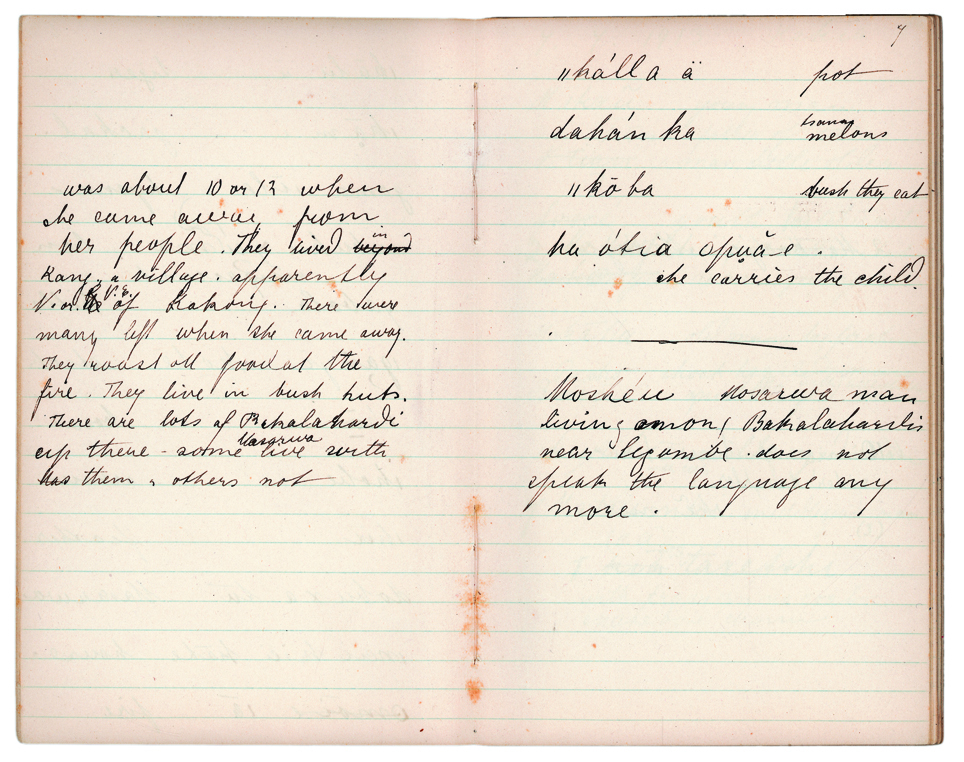 was about 10 or 12 when
she came away from
her people. They lived in beyond
Kang, a village. apparently
N. or of Kakong. There were
many left when she came away.
They roast all food at the
fire. They live in bush huts.
There are lots of Bakalahardi
up there - some Masarwa live with
them & others not
7
"kálla ä pot
dahán ka tsama melons
"kōba bush they eat
ha ótia opuā-e.
she carries the child.
Moshéu Mosarwa man
living among Bakalahardis
near . does not
speak the language any
more.